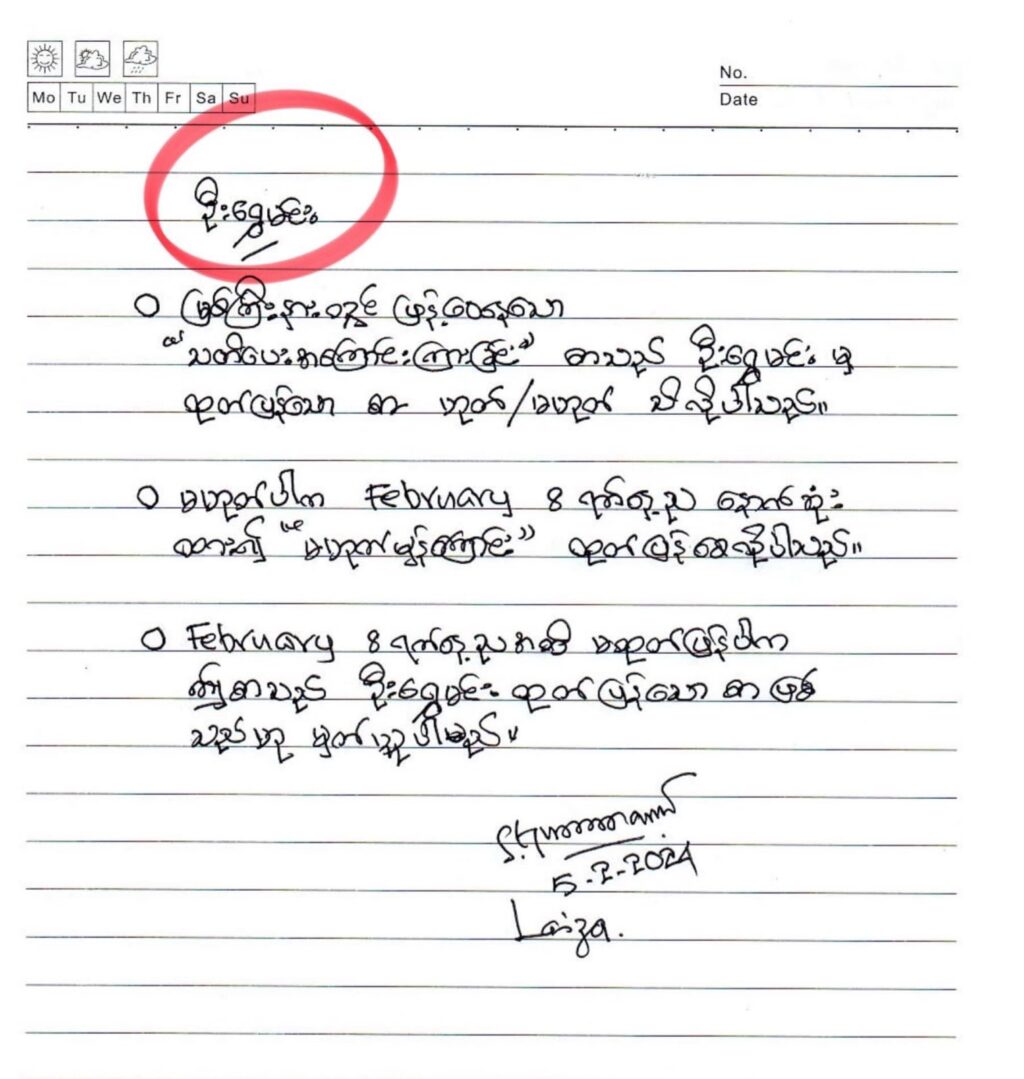 Mo Tu We Th Fr Sa Su
No.
Date
ဦးရွှေမင်း
၀ မြစ်ကြီးနားဝတွင် ဖြန့်ဝေနေသော
"သတိပေးအကြောင်းကြားခြင်း" စာသည် ဦးရွှေမင်း မှ
ထုတ်ပြန်သော စာ ဟုတ်/မဟုတ် သိလိုပါသည်။
၀ မဟုတ်ပါက February 8 ရက်နေ့ည နောက်ဆုံး
ထား၍ "မဟုတ်မှန်ကြောင်း" ထုတ်ပြန်စေလိုပါသည်။
၀ February 8 ရက်နေ့ညအထိ မထုတ်ပြန်ပါက
ဤစာသည် ဦးရွှေမင်း ထုတ်ပြန်သော စာ ဖြစ်
သည်ဟု မှတ်ယူပါမည်။
5-2-2024
Laiza.